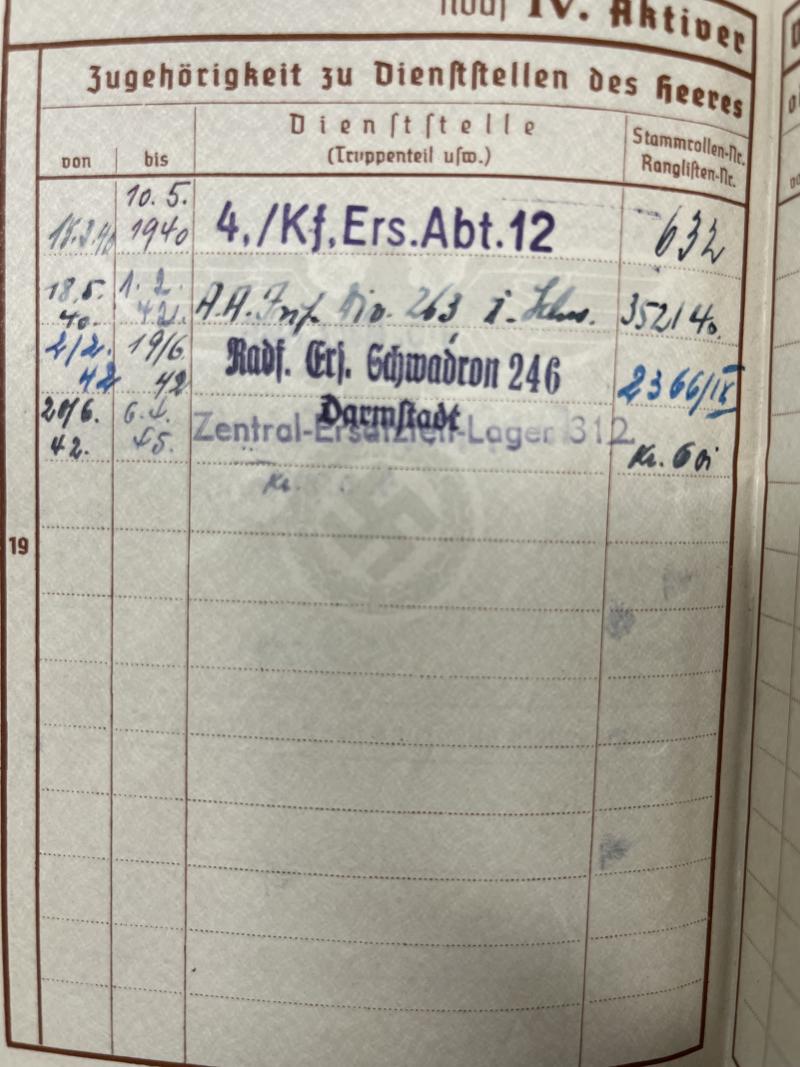 IV. Aktiver
Zugehörigkeit zu Dienststellen des Heeres
von bis Dienststelle (Truppenteil usw.) Stammrollen-Nr. Ranglisten-Nr.
10. 5. 1940 4./Kf.Ers.Abt.12 632
18.5. 40. 1. 2. 42. A.A. Inf. Div. 263 352/40.
2/2. 42 19/6 42 Radf. Ers. Schwadron 246 2366/IX
Darmstadt
20/6. 42. Zentral-Ersatzteil-Lager 312 Kr.
Kr.
19